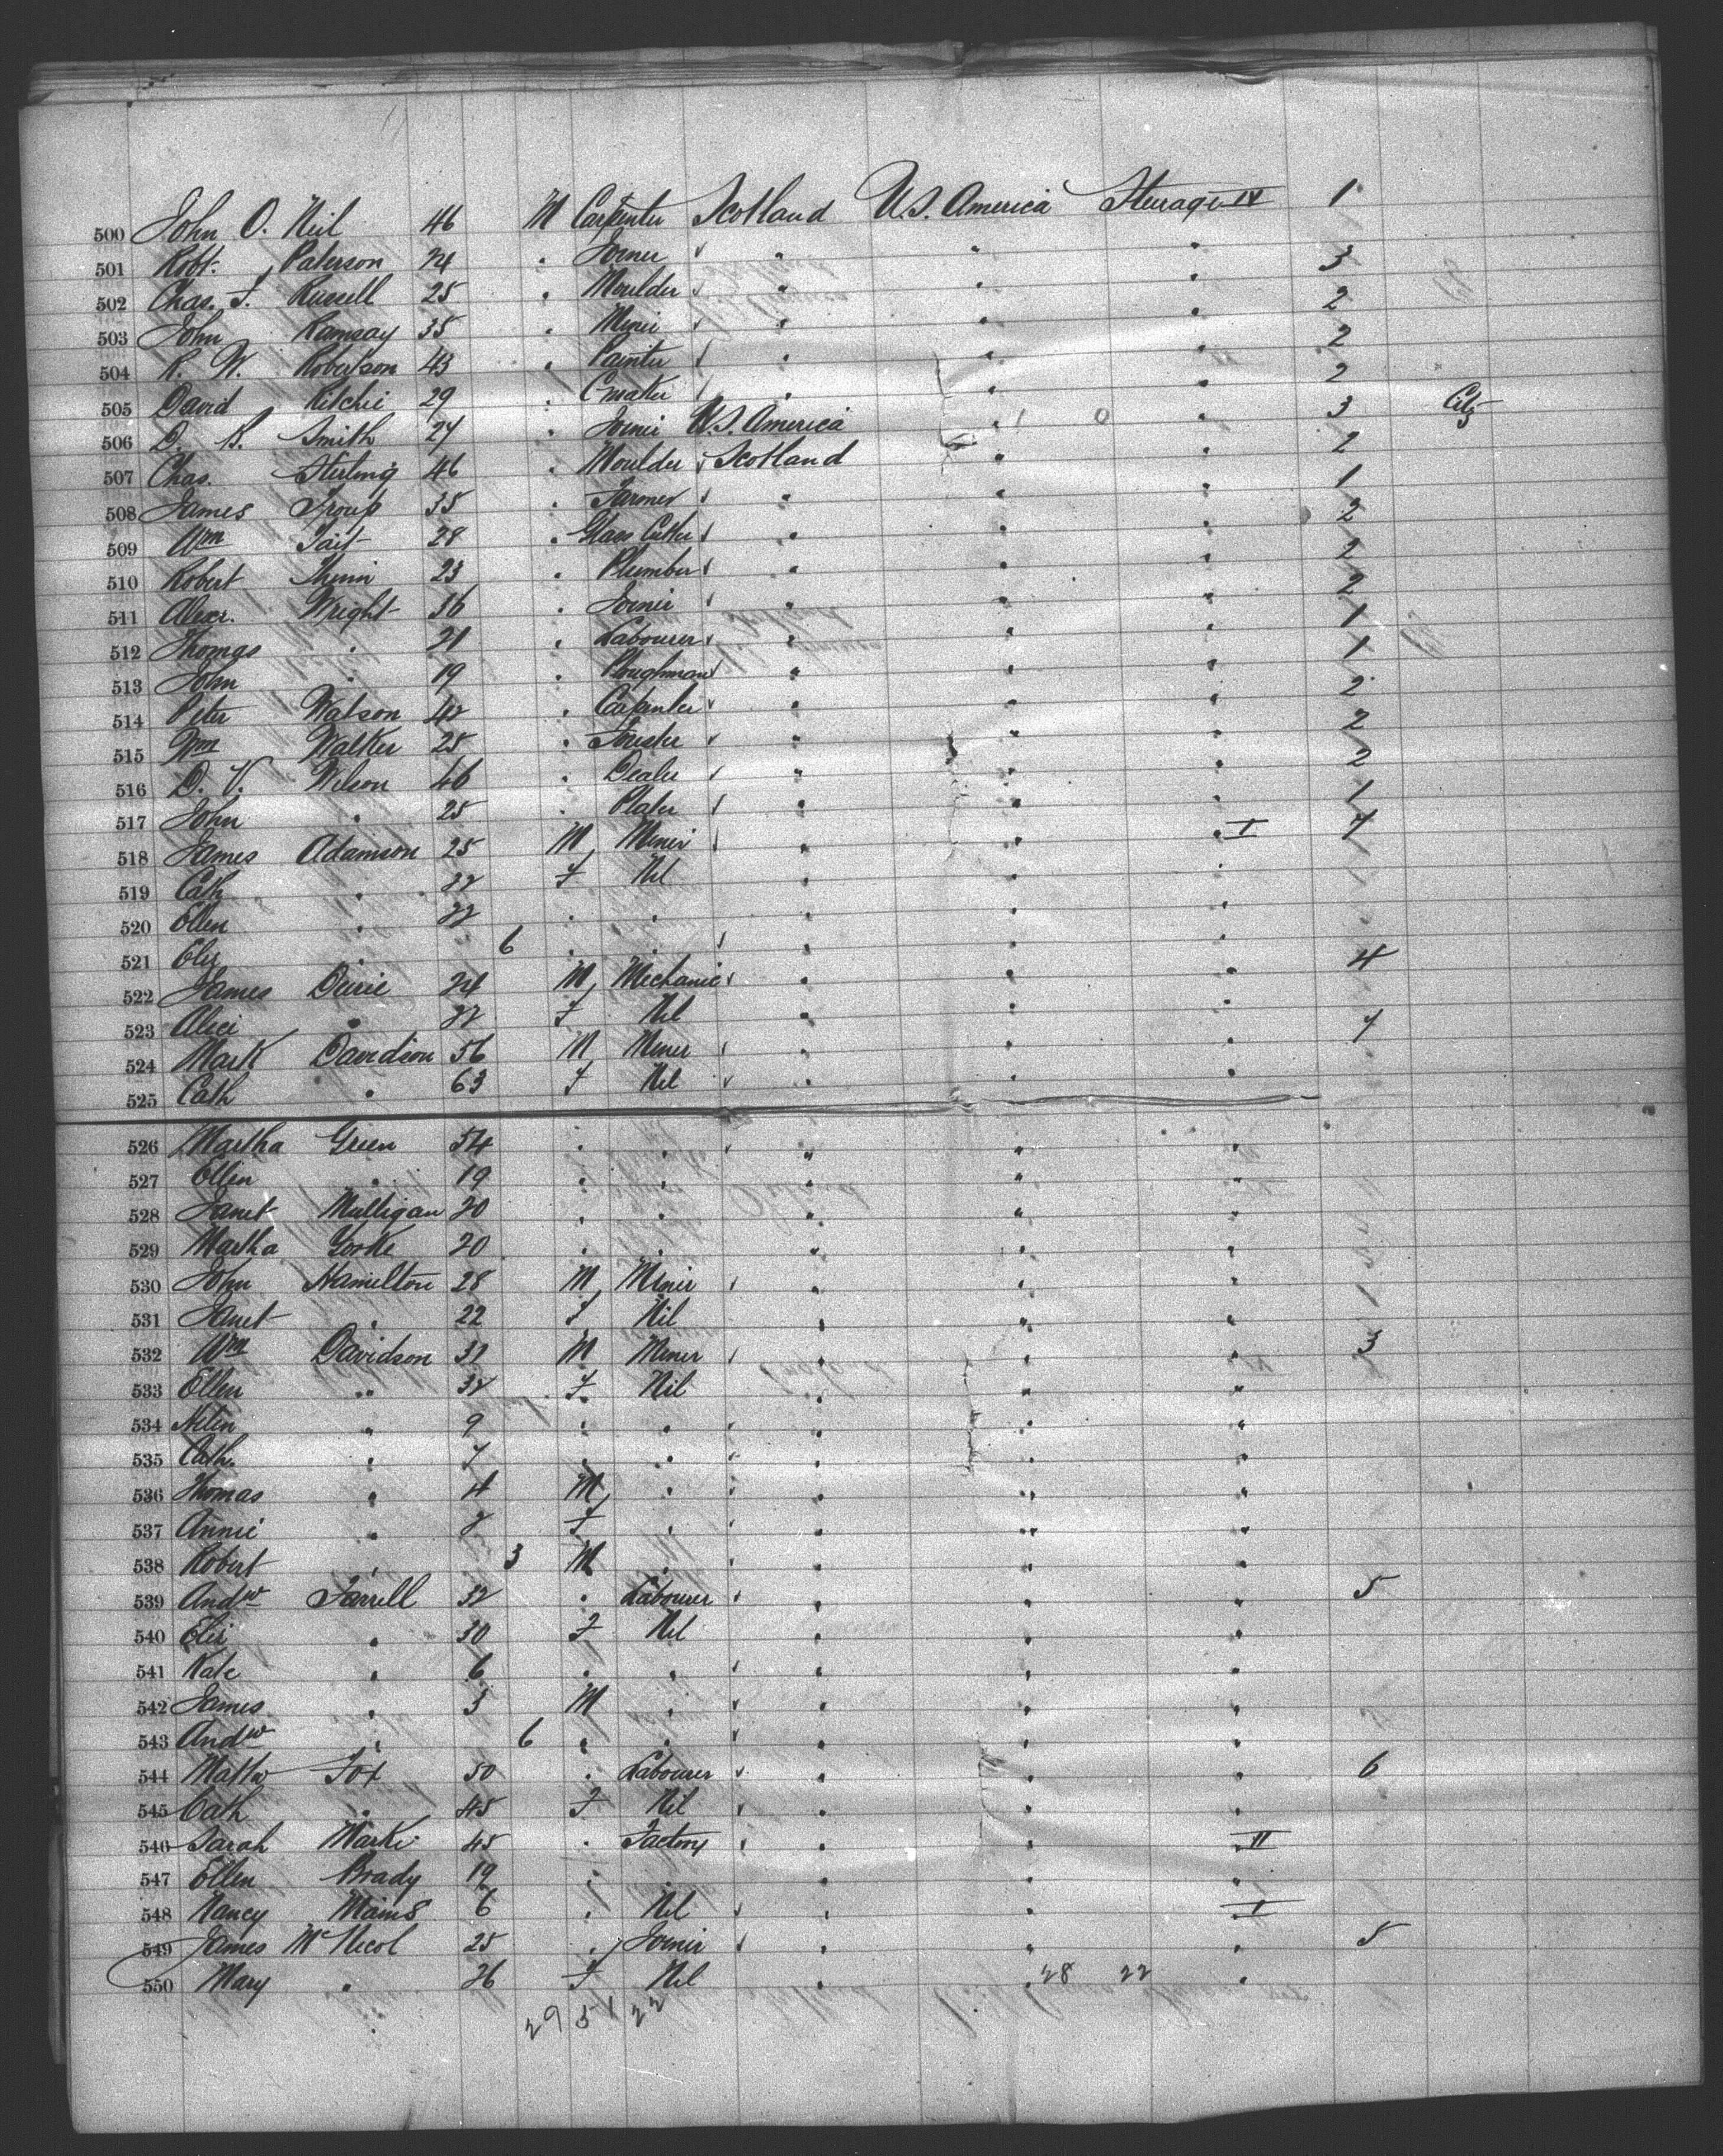 500 John O. Neil 46 M Carpenter Scotland U.S. America Steerage IV 1
501 Robt. Paterson 24 " Joiner " " " 3
502 Chas. J. Russell 25 " Moulder " " " 2
503 John Ramsay 35 " Miner " " " 2
504 R. W. Robertson 43 " Painter " " " 2
505 David Ritchie 29 " " " " 3
506 D. B. Smith 24 " Joiner U.S. America " " 2 City
507 Chas. Sterling 46 " Moulder Scotland " " 1
508 James Troup 35 " Farmer " " " 2
509 Wm Tait 28 " Glass Cutter " " " 2
510 Robert 23 " Plumber " " " 2
511 Alexr. Wright 36 " Joiner " " " 1
512 Thomas " 21 " Labourer " " " 1
513 John " 19 " Ploughman " " " 2
514 Peter Watson 42 " Carpenter " " " 2
515 Wm Walker 25 " Forester " " " 2
516 D. V. Wilson 46 " Dealer " " " 1
517 John " 25 " Plater " " "
518 James Adamson 25 M Miner " " " I 7
519 Cath " 22 F Nil " " "
520 Ellen " 22 " " " " "
521 Eliz " 6 " " " " "
522 James Deirie 24 M Mechanic " " " 4
523 Alice " 22 F Nil " " "
524 Mark Davidson 56 M Miner " " " 7
525 Cath " 63 F Nil " " "
526 Martha Green 54 " " " " "
527 Ellen " 19 " " " " "
528 Janet Mulligan 20 " " " " "
529 Martha 20 " " " " "
530 John Hamilton 28 M Miner " " "
531 Janet " 22 F Nil " " "
532 Wm Davidson 31 M Miner " " " 3
533 Ellen " 32 F Nil " " "
534 Helen " 9 " " " " "
535 Cath. " 7 " " " " "
536 Thomas " 4 M " " " "
537 Annie " 2 F " " " "
538 Robert " 3 M " " " "
539 Andw Farrell 32 " Labourer " " " 5
540 Eliz " 30 F Nil " " "
541 Kate " 6 " " " " "
542 James " 3 M " " " "
543 Andw " 6 " " " " "
544 Mattw Fox 50 " Labourer " " " 6
545 Cath " 45 F Nil " " "
546 Sarah 45 " Factory " " " II
547 Ellen Brady 19 " " " " "
548 Nancy Mains 6 " Nil " " " I
549 James McNicol 25 " Joiner " " " 5
550 Mary " 26 F Nil " " 28 22 "
29 51 22